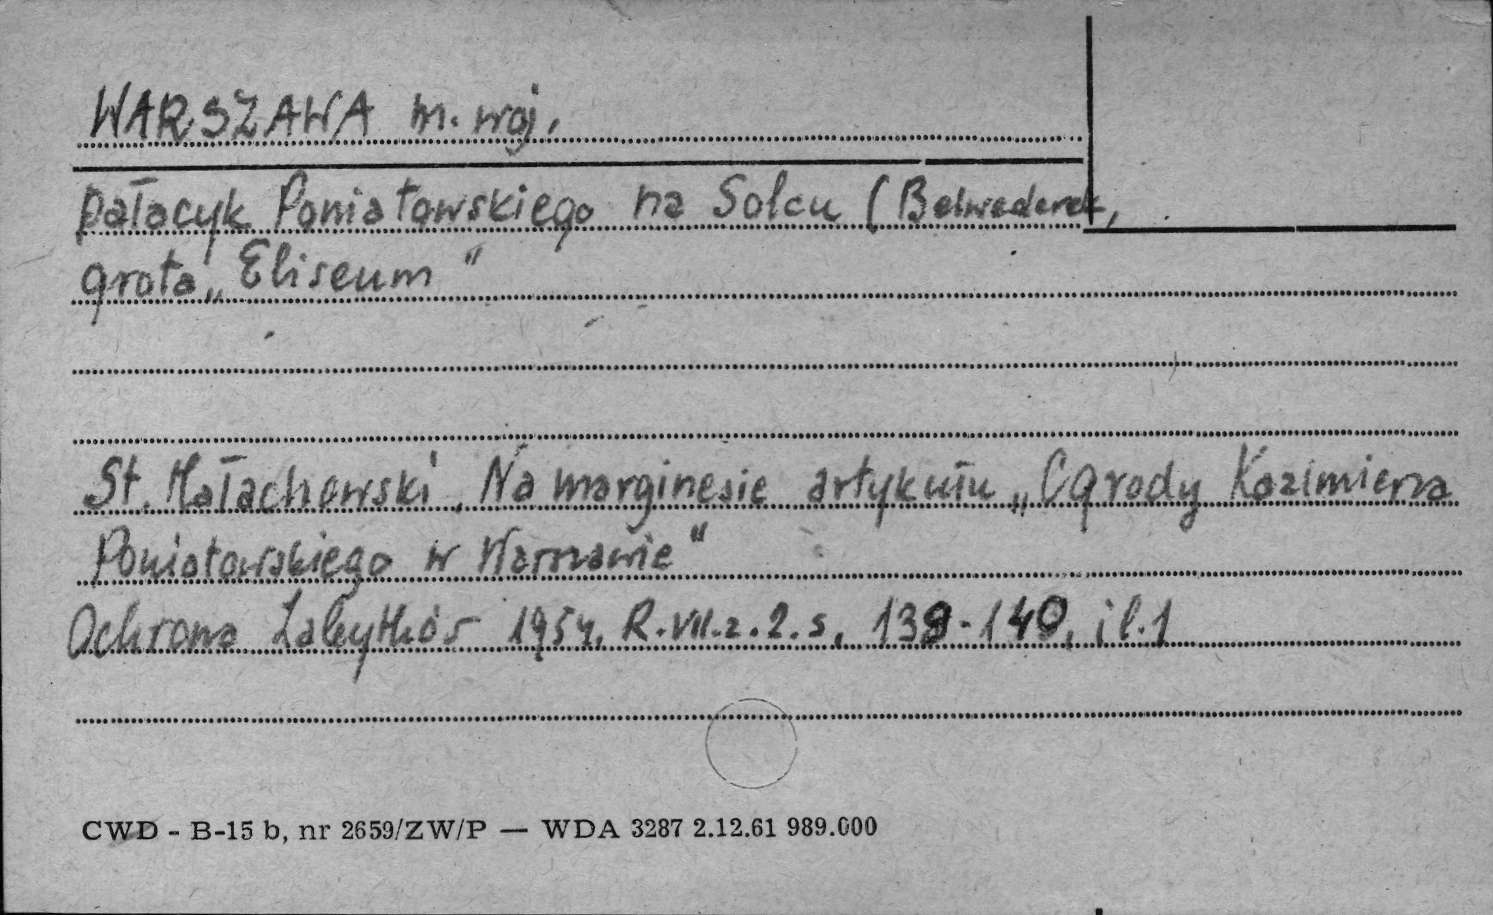 WARSZAWA m. woj.
pałacyk Poniatowskiego na Solcu (Belwederek,
grota „Eliseum"
St. Małachowski, Na marginesie artykułu „Ogrody Kazimierza
Poniatowskiego w Warszawie"
Ochrona Zabytków 1954, R. VII. z. 2. s. 139-140, il. 1
CWD - B-15 b, nr 2659/ZW/P — WDA 3287 2.12.61 989.000